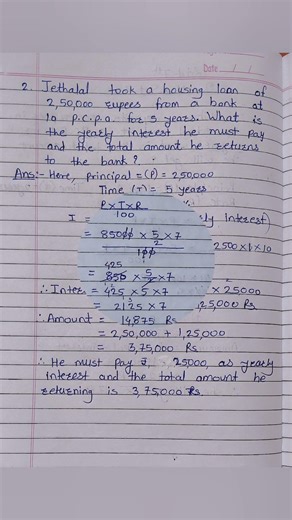 Date / /
2. Jethalal took a housing loan of
2,50,000 rupees from a bank at
10 p.c.p.a. for 5 years. What is
the yearly interest he must pay
and the total amount he returns
to the bank?
Ans:- Here, principal = (P) = 250,000
Time (T) = 5 years
P x T x R
I = 100 interest)
= 85000 x 5 x 7
100
2500 x 1 x 10
425
= 850 x 5 x 7
2
∴ Inter = 425 x 5 x 7 x 25000
= 2125 x 7 ,25,000 Rs
∴ Amount = 14,875 Rs
= 2,50,000 + 1,25,000
= 3,75,000 Rs
∴ He must pay 25000, as yearly
interest and the total amount he
returning is 3,75,000 Rs.